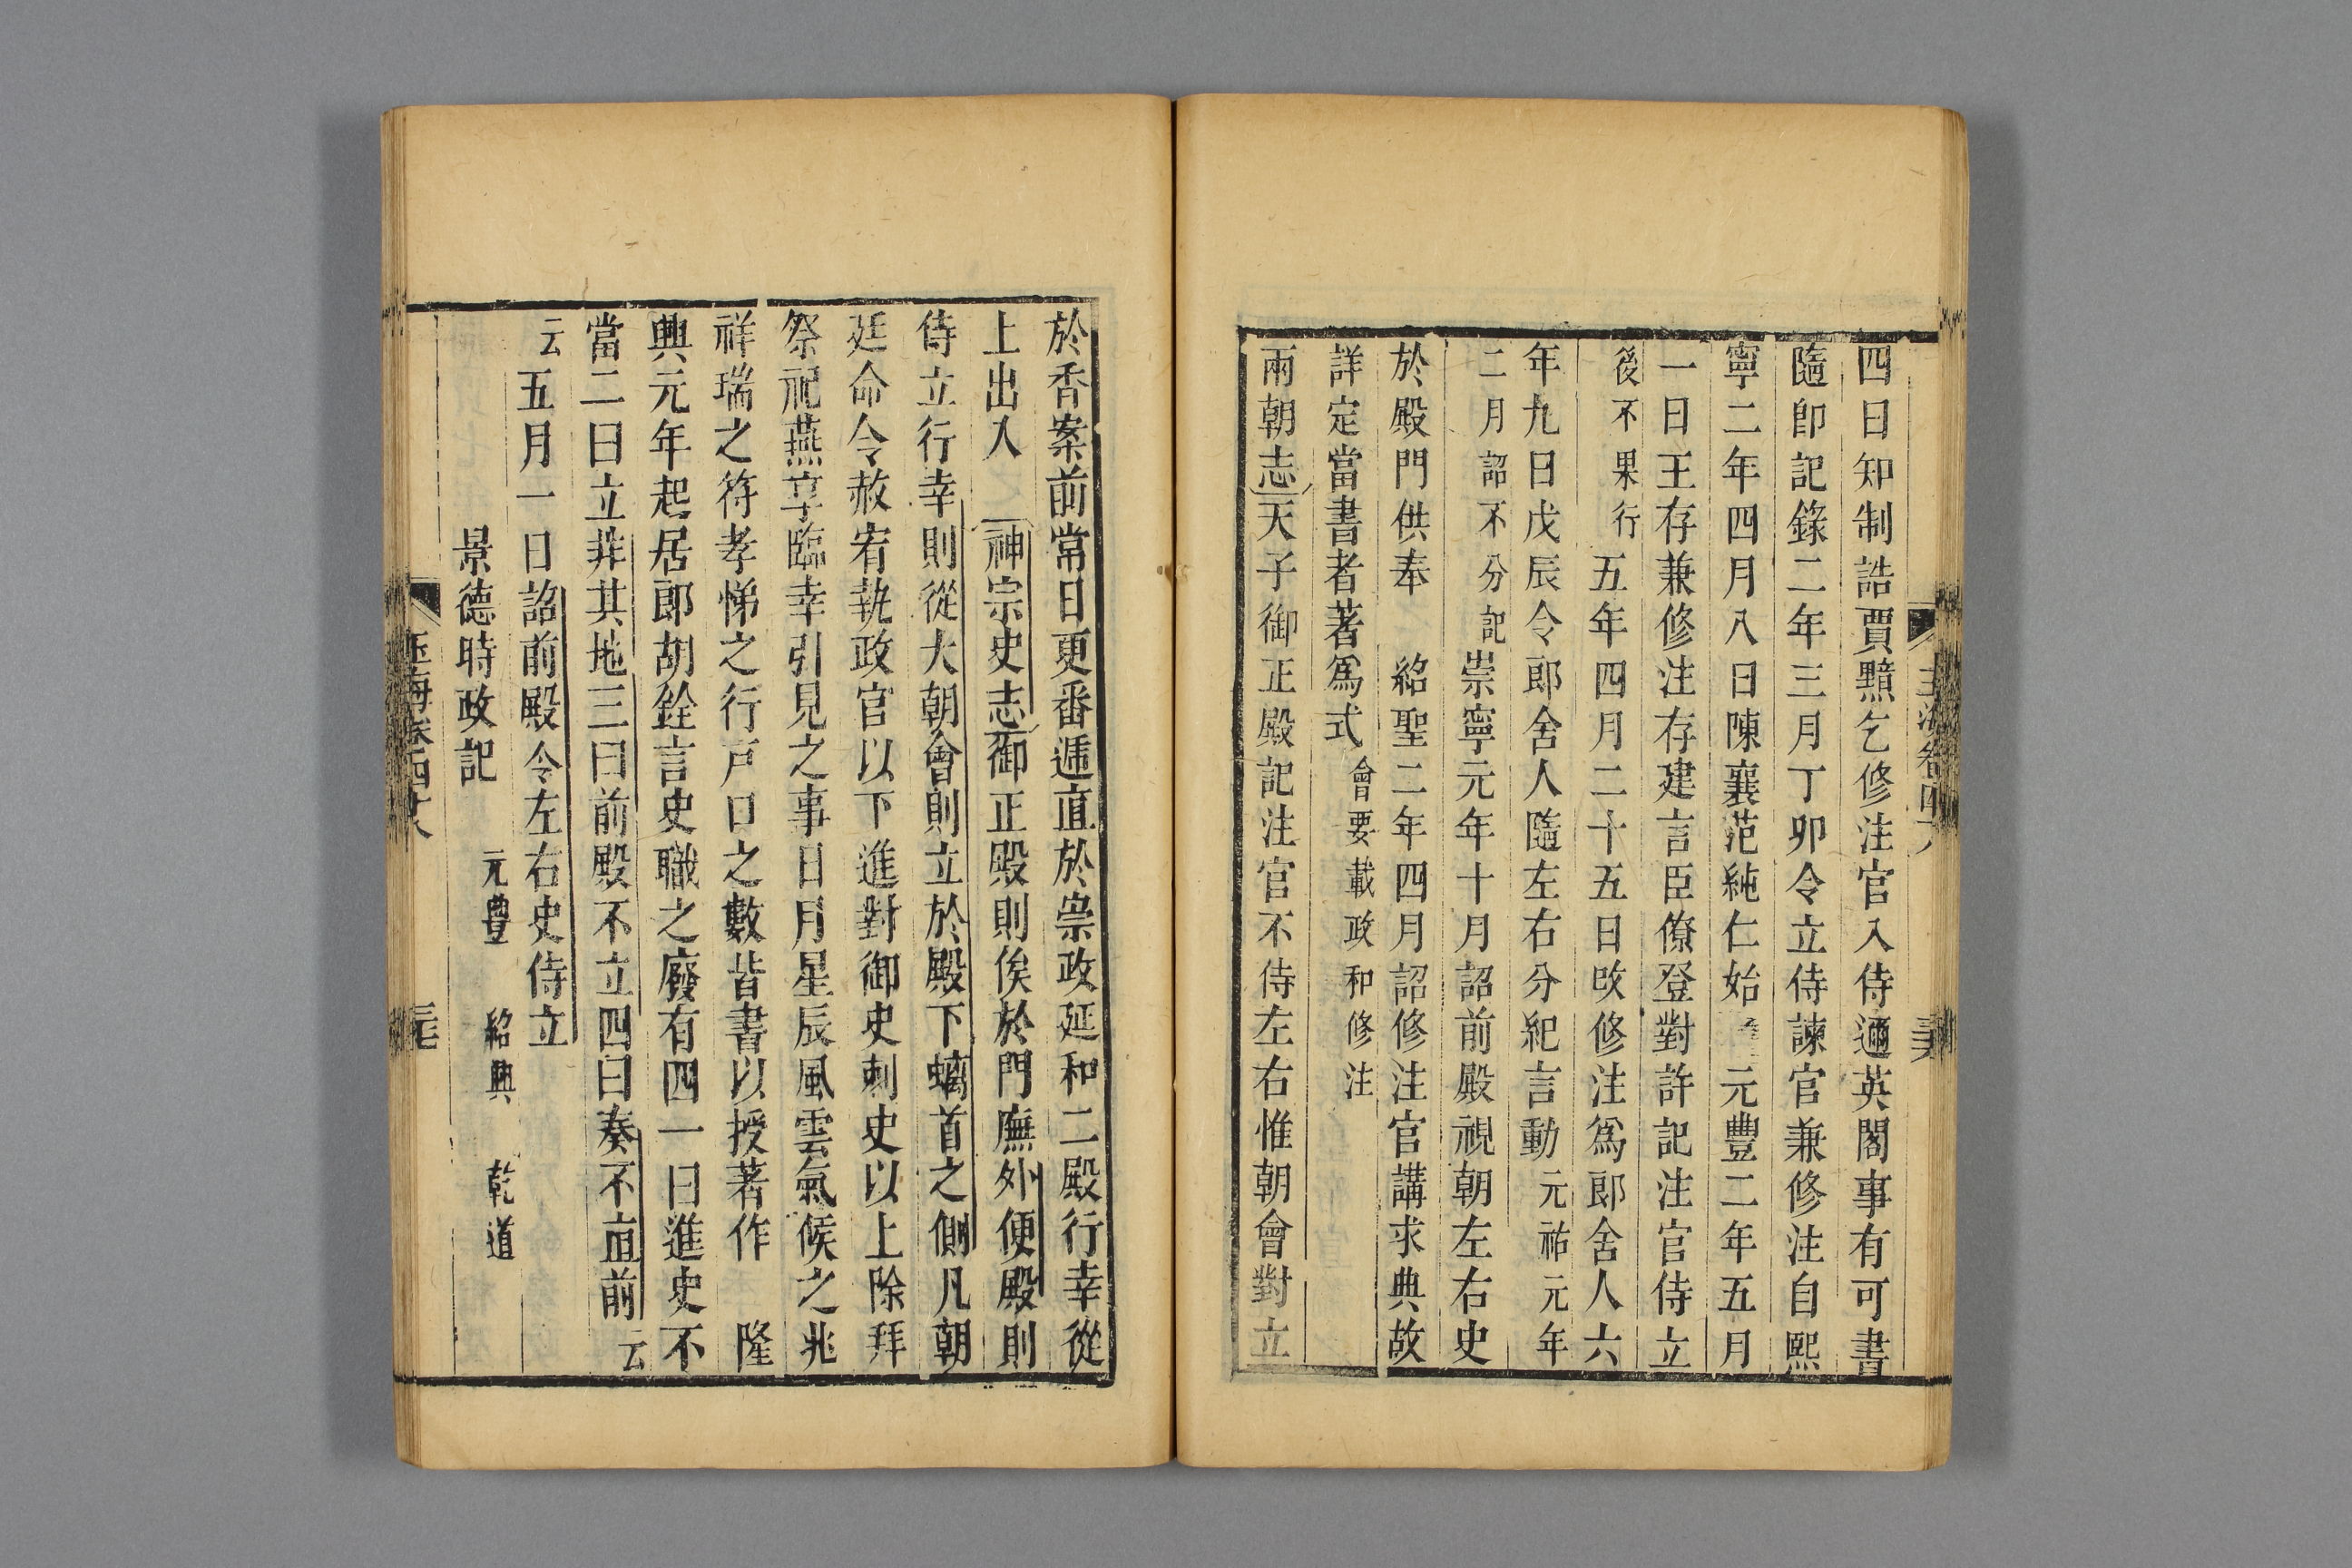 四日知制誥賈黯乞修注官入侍邇英閣事有可書
隨即記錄二年三月丁卯令立侍諫官兼修注自熙
寧二年四月八日陳襄范純仁始 元豐二年五月
一日王存兼修注存建言臣僚登對許記注官侍立
後不果行五年四月二十五日改修注爲郎舍人六
年九日戊辰令郎舍人隨左右分紀言動元祐元年
二月詔不分記崇寧元年十月詔前殿視朝左右史
於殿門供奉 紹聖二年四月詔修注官講求典故
詳定當書者著爲式會要載政和修注
兩朝志天子御正殿記注官不侍左右惟朝會對立
玉海卷四十八
於香案前常日更番遞直於崇政延和二殿行幸從
上出入 神宗史志御正殿則俟於門廡外便殿則
侍立行幸則從大朝會則立於殿下螭首之側凡朝
廷命令赦宥執政官以下進對御史刺史以上除拜
祭祀燕享臨幸引見之事日月星辰風雲氣候之兆
祥瑞之符孝悌之行戸口之數皆書以授著作 隆
興元年起居郎胡銓言史職之廢有四一曰進史不
當二曰立非其地三曰前殿不立四曰奏不直前云
云五月一日詔前殿令左右史侍立
景德時政記 元豐 紹興 乾道
玉海卷四十八